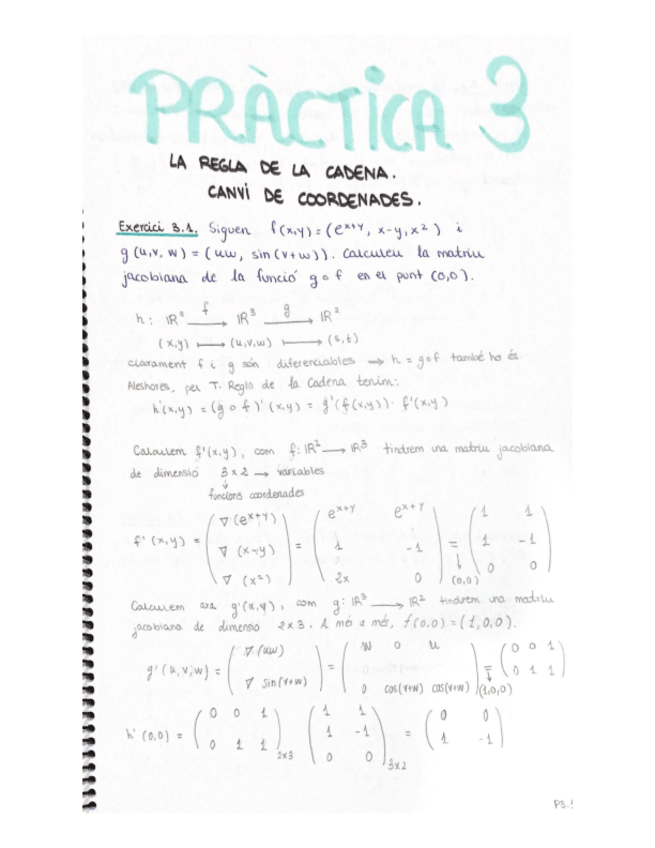 PRÀCTICA 3
LA REGLA DE LA CADENA.
CANVI DE COORDENADES.
Exercici 3.1. Siguen f(x,y)=(e^x+y, x-y, x²) i
g(u,v,w) = (uw, sin(v+w)). Calculeu la matriu
jacobiana de la funció g∘f en el punt (0,0).
h: ℝ² →f ℝ³ →g ℝ²
(x,y) ⟼ (u,v,w) ⟼ (s,t)
clarament f i g són diferenciables → h = g∘f també ho és
Aleshores, per T. Regla de la Cadena tenim:
h'(x,y) = (g∘f)'(x,y) = g'(f(x,y))· f'(x,y)
Calculem f'(x,y), com f: ℝ² → ℝ³ tindrem una matriu jacobiana
de dimensió 3x2 → variables
↓
funcions coordenades
f'(x,y) = ( ∇(e^x+y) ; ∇(x-y) ; ∇(x²) ) = ( e^x+y e^x+y ; 1 -1 ; 2x 0 ) = ↓ (0,0) ( 1 1 ; 1 -1 ; 0 0 )
Calculem ara g'(u,v), com g: ℝ³ → ℝ² tindrem una matriu
jacobiana de dimensio 2x3. A més a més, f(0,0) = (1,0,0).
g'(u,v,w) = ( ∇(uw) ; ∇ sin(v+w) ) = ( w 0 u ; 0 cos(v+w) cos(v+w) ) = ↓ (1,0,0) ( 0 0 1 ; 0 1 1 )
h'(0,0) = ( 0 0 1 ; 0 1 1 )2x3 ( 1 1 ; 1 -1 ; 0 0 )3x2 = ( 0 0 ; 1 -1 )